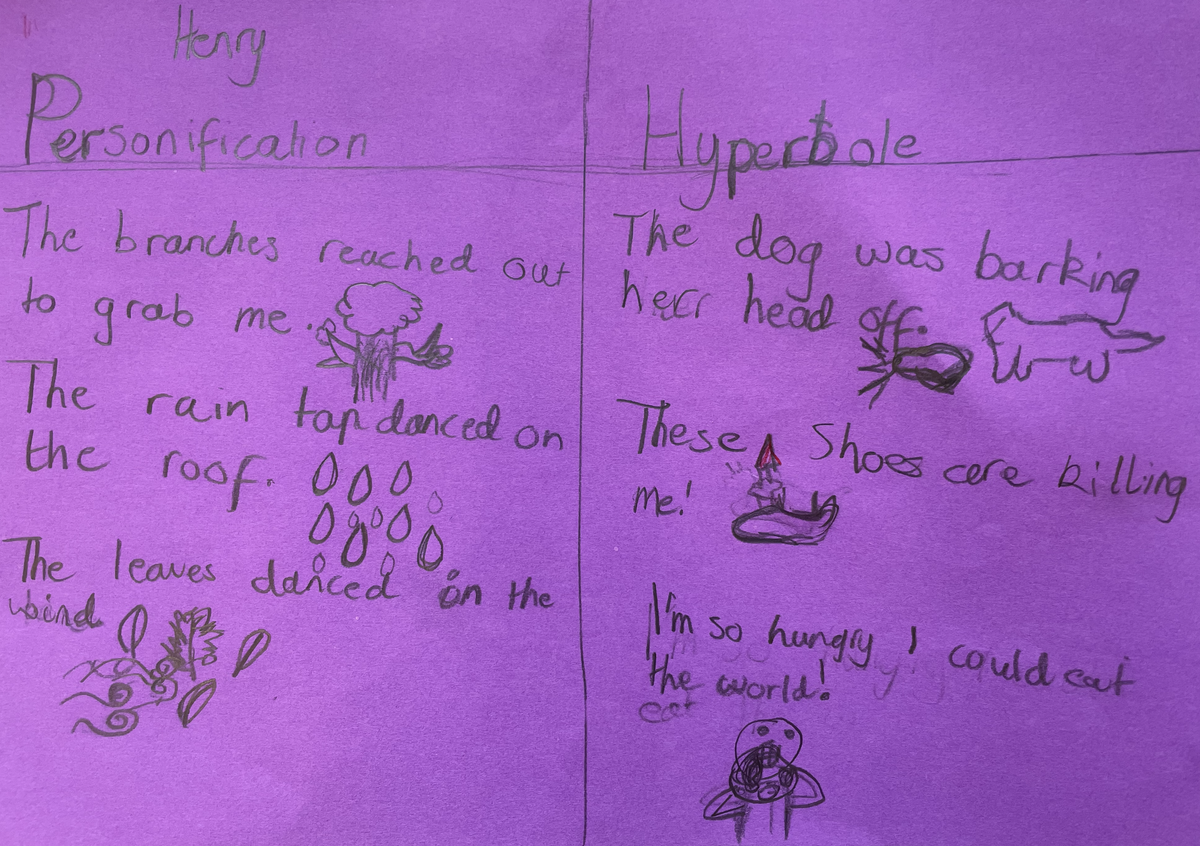 Henry
Personification
The branches reached out
to grab me.
The rain tap danced on
the roof.
The leaves danced on the
wind.
Hyperbole
The dog was barking
herr head off.
These Shoes are killing
me!
I'm so hungry I could eat
the world!
eat